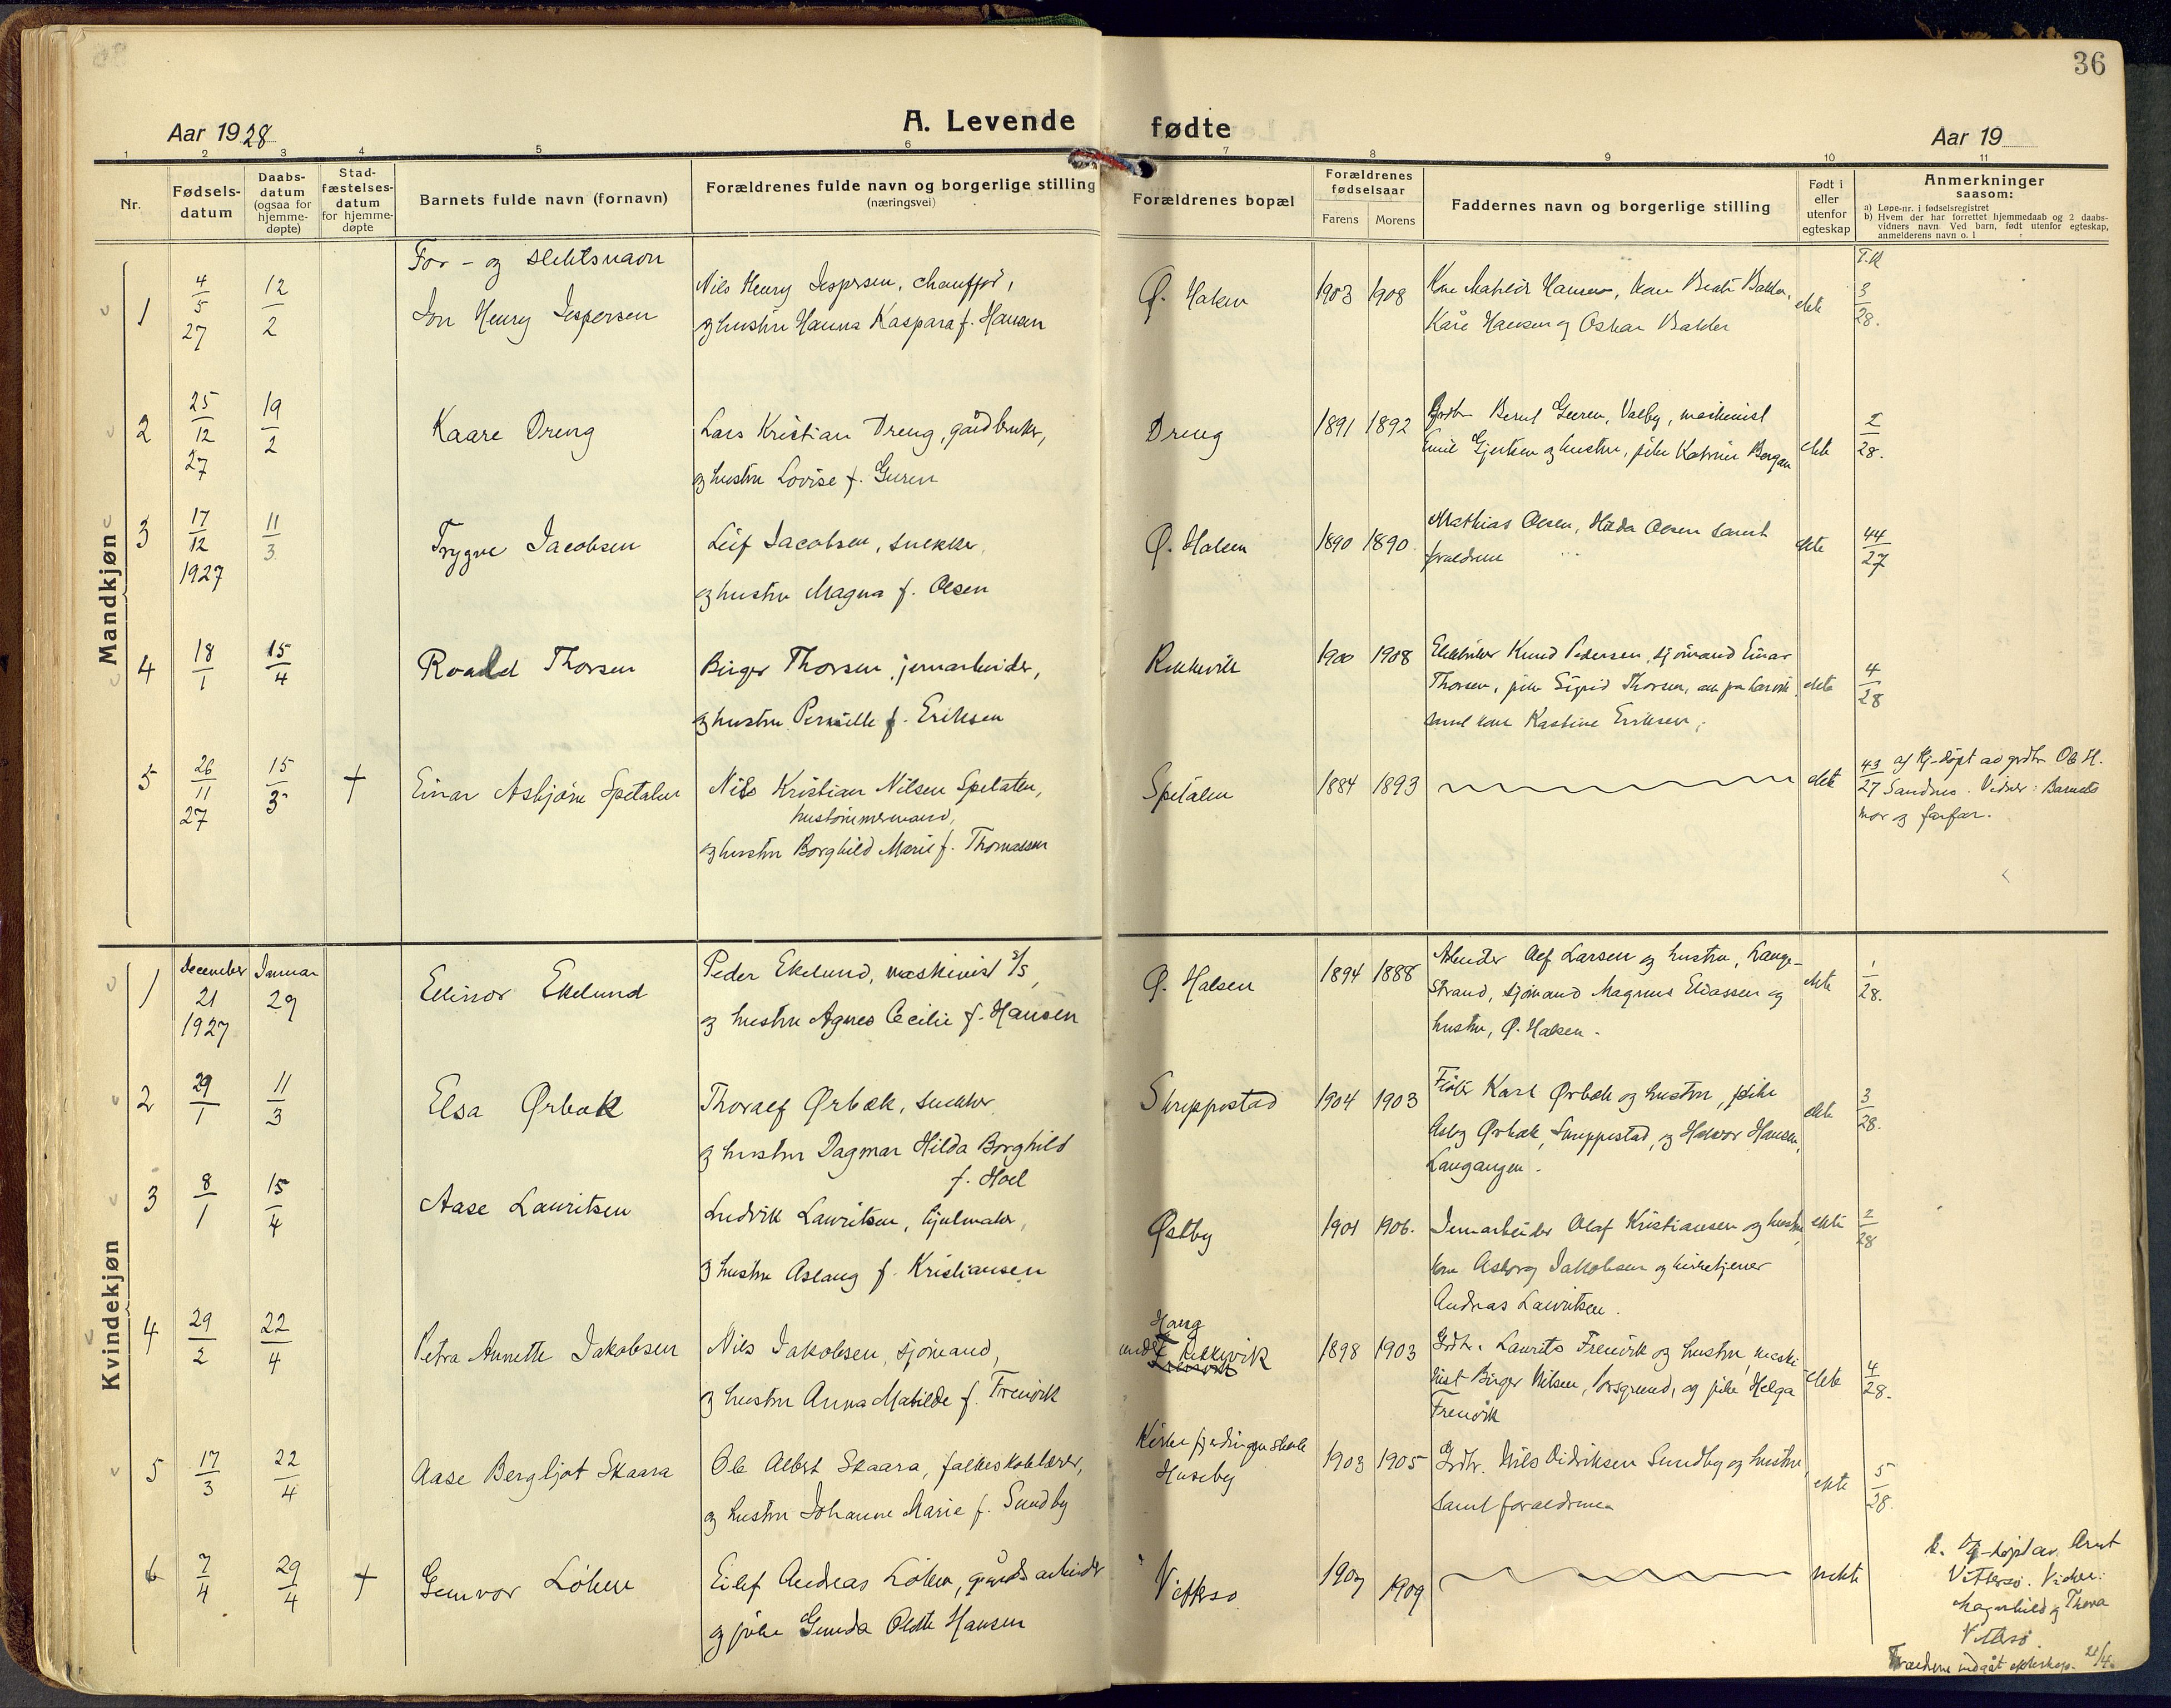 36
Aar 1928
A. Levende fødte
Aar 19
1 2 3 4 5 6 7 8 9 10 11
Nr.
Fødsels-
datum
Daabs-
datum
(ogsaa for
hjemme-
døpte)
Stad-
fæstelses-
datum
for hjemme-
døpte
Barnets fulde navn (fornavn)
Forældrenes fulde navn og borgerlige stilling
(næringsvei)
Forældrenes bopæl
Forældrenes
fødselsaar
Farens Morens
Faddernes navn og borgerlige stilling
Født i
eller
utenfor
egteskap
Anmerkninger
saasom:
a) Løpe-nr. i fødselsregistret
b) Hvem der har forrettet hjemmedaab og 2 daabs-
vidners navn. Ved barn, født utenfor egteskap,
anmelderens navn o. l
Mandkjøn
For- og slektsnavn
1
4/5 27
12/2
Jon Henry Jespersen
Nils Henry Jespersen, chauffør,
og hustru Hanna Kaspara f. Hansen
Ø. Halsen
1903 1908
Kåre Hansen og Oskar Balder
ekte
3/28.
2
25/12 27
19/2
Kaare Dreng
Lars Kristian Dreng, gårdbruker,
og hustru Lovise f. Guren
Dreng
1891 1892
Valby, maskinist
Emil Gjertsen og hustru, pike Katrine Bergan
ekte
2/28.
3
17/12 1927
11/3
Trygve Jacobsen
Leif Jacobsen, snekker,
og hustru Magna f. Olsen
Ø. Halsen
1890 1890
Mathias Olsen, Hilda Olsen samt
foraldrene
ekte
44/27
4
18/1
15/4
Roald Thorsen
Birger Thorsen, jernarbeider,
og hustru Pernille f. Eriksen
Rekkevik
1900 1908
Knud Pedersen, sjømand Einar
Thorsen, pike Sigrid Thorsen,
samt kone Kastine Eriksen,
ekte
4/28
5
26/11 27
15/3
+
Einar Asbjørn Spetalen
Nils Kristian Nilsen Spetalen,
hustømmermand,
og hustru Borghild Marie f. Thomassen
Spetalen
1884 1893
ekte
43/27 Hj-døpt av grdbr. Ole H.
Sandnes. Vidner: Barnets
mor og farfar.
Kvindekjøn
1
december 21 1927
Januar 29
Ellinor Ekelund
Peder Ekelund, maskinist S/S,
og hustru Agnes Cecilie f. Hansen
Ø. Halsen
1894 1888
Larsen og hustru, Lange-
strand, sjømand Magnus Eliassen og
hustru, Ø. Halsen.
ekte
1/28.
2
29/1
11/3
Elsa Ørbæk
Thoralf Ørbæk, snekker
og hustru Dagmar Hilda Borghild
f. Hoel
Skreppestad
1904 1903
Karl Ørbæk og hustru, pike
Ørbæk, Skreppestad, og Halvor Hansen,
Langangen.
ekte
3/28.
3
8/1
15/4
Aase Lauritsen
Ludvik Lauritsen, hjulmaker,
og hustru Aslaug f. Kristiansen
Østby
1901 1906.
Jernarbeider Olaf Kristiansen og hustru,
kone Asborg Jakobsen og kirketjener
Andreas Lauritsen.
ekte
2/28
4
29/2
22/4
Petra Annette Jakobsen
Nils Jakobsen, sjømand,
og hustru Anna Matilde f. Frenvik
Haug
under Rekkevik
1898 1903
Grdbr. Laurits Frenvik og hustru, maski-
nist Birger Nilsen, Porsgrund, og pike Helga
Frenvik
ekte
4/28.
5
17/3
22/4
Aase Bergljot Skaara
Ole Albert Skaara, folkeskolelærer,
og hustru Johanne Marie f. Sundby
Kirkefjerdingen skole
Huseby
1903 1905
Grdbr. Nils Didriksen Sundby og hustru,
samt foraldrene
ekte
5/28.
6
7/4
29/4
+
Gunvor Løken
Eilef Andreas Løken, gårdsarbeider
og pike Gunda Odette Hansen
Vittersø
1907 1909
uekte
b. Hj-døpt av Arnt
Vittersø. Vidner:
Magnhild og Thora
Vittersø.
Foraldrene indgåt ekteskap. 21/4.